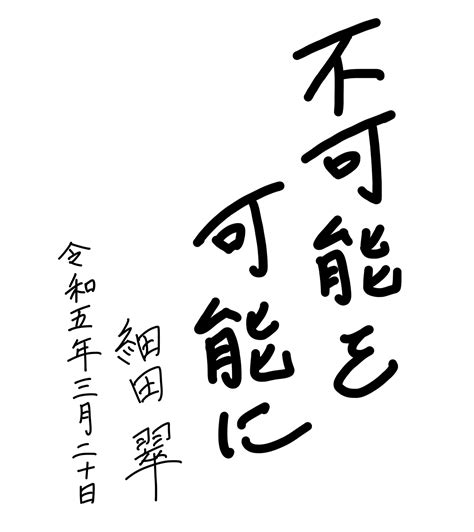 不可能を
可能に
細田 翠
令和五年三月二十日